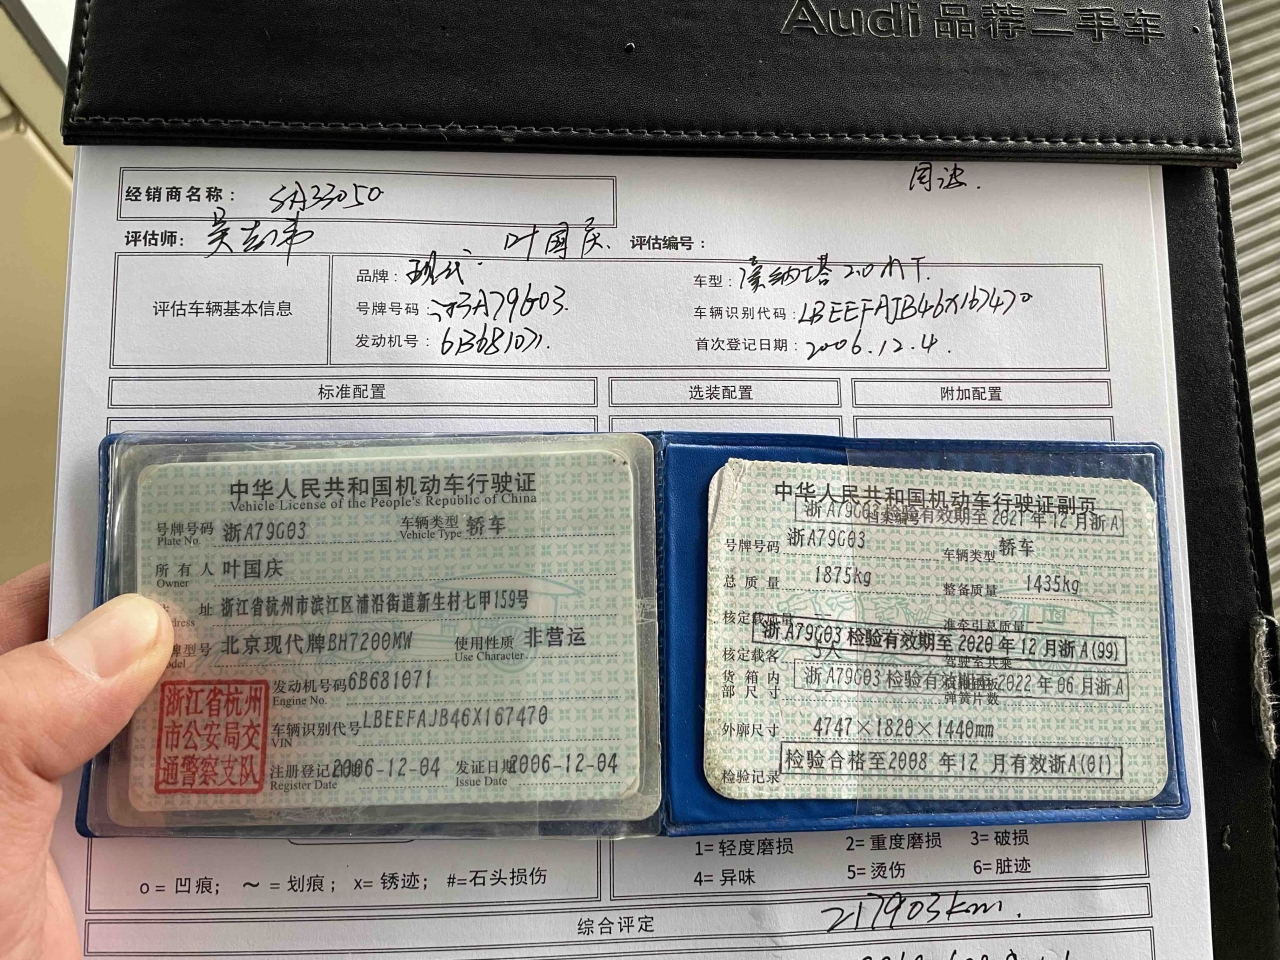 Audi 品荐二手车
周波.
经销商名称: SA33050
评估师: 叶国庆. 评估编号:
评估车辆基本信息
品牌: 现代. 车型: 索纳塔 2.0 MT.
号牌号码: 浙A79G03. 车辆识别代码: LBEEFAJB46X167470
发动机号: 6B681071. 首次登记日期: 2006.12.4.
标准配置 选装配置 附加配置
中华人民共和国机动车行驶证
Vehicle License of the People's Republic of China
号牌号码 浙A79G03 车辆类型 轿车
Plate No. Vehicle Type
所有人 叶国庆
Owner
址 浙江省杭州市滨江区浦沿街道新生村七甲159号
dress
牌型号 北京现代牌BH7200MW 使用性质 非营运
odel Use Character
浙江省杭州
市公安局交
通警察支队
发动机号码 6B681071
Engine No.
车辆识别代号 LBEEFAJB46X167470
VIN
注册登记 2006-12-04 发证日期 2006-12-04
Register Date Issue Date
中华人民共和国机动车行驶证副页
浙A79G03 检验有效期至2021年12月浙A
档案编号
号牌号码 浙A79G03 车辆类型 轿车
总质量 1875kg 整备质量 1435kg
核定载质量 准牵引总质量
浙A79G03 检验有效期至2020年12月浙A(99)
核定载客 5人 驾驶室共乘
货箱内部尺寸
浙A79G03 检验有效期至2022年06月浙A
弹簧片数
外廓尺寸 4747×1820×1440mm
检验记录 检验合格至2008年12月有效浙A(01)
o = 凹痕; ~ = 划痕; x= 锈迹; #=石头损伤
1= 轻度磨损 2= 重度磨损 3= 破损
4= 异味 5= 烫伤 6= 脏迹
综合评定 217903km.